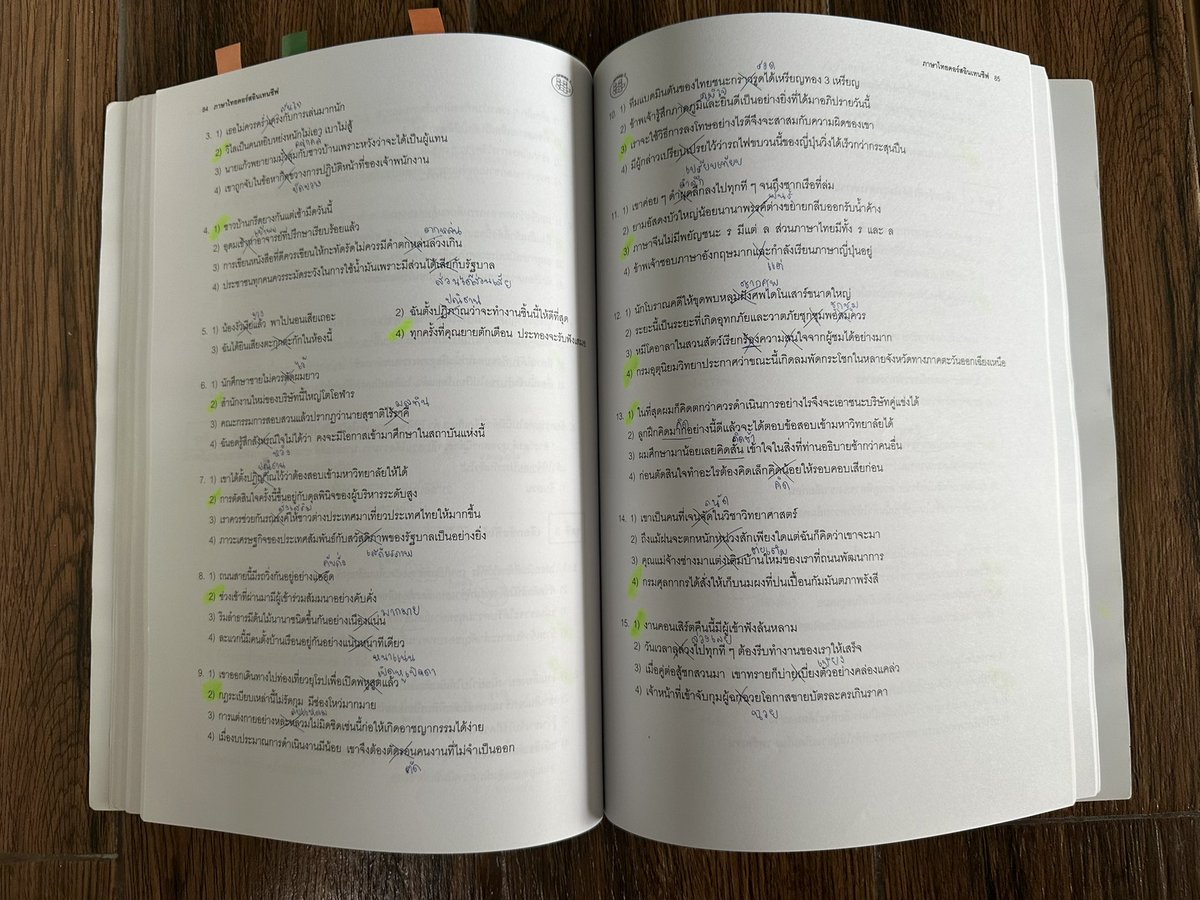 84 ภาษาไทยคอร์สอินเทนซีฟ
3. 1) เธอไม่ควรคร่ำเคร่งกับการเล่นมากนัก
2) วิไลเป็นคนหยิบหย่งหนักไม่เอา เบาไม่สู้
คลุกคลี
3) นายแก้วพยายามมั่วสุมกับชาวบ้านเพราะหวังว่าจะได้เป็นผู้แทน
4) เขาถูกจับในข้อหากีดขวางการปฏิบัติหน้าที่ของเจ้าพนักงาน
ขัดขวาง
4. 1) ชาวบ้านกรีดยางกันแต่เช้ามืดวันนี้
2) อุดมเข้าหาอาจารย์ที่ปรึกษาเรียบร้อยแล้ว
ตกหล่น
3) การเขียนหนังสือที่ดีควรเขียนให้กะทัดรัดไม่ควรมีคำตกหล่นล่วงเกิน
4) ประชาชนทุกคนควรระมัดระวังในการใช้น้ำมันเพราะมีส่วนได้เสียกับรัฐบาล
ส่วนได้ส่วนเสีย
ปณิธาน
5. 1) น้องงัวเงียแล้ว พาไปนอนเสียเถอะ
2) ฉันตั้งปฏิภาณว่าจะทำงานชิ้นนี้ให้ดีที่สุด
3) ฉันได้ยินเสียงตะกุกตะกักในห้องนี้
4) ทุกครั้งที่คุณยายตักเตือน ประทองจะรับฟังเสมอ
ไว้
6. 1) นักศึกษาชายไม่ควรตัดผมยาว
2) สำนักงานใหม่ของบริษัทนี้ใหญ่โตโอฬาร
มลทิน
3) คณะกรรมการสอบสวนแล้วปรากฏว่านายสุชาติไร้ราคี
4) ฉันอดรู้สึกสังหรณ์ใจไม่ได้ว่า คงจะมีโอกาสเข้ามาศึกษาในสถาบันแห่งนี้
ปณิธาน
7. 1) เขาได้ตั้งปฏิญาณไว้ว่าต้องสอบเข้ามหาวิทยาลัยให้ได้
2) การตัดสินใจครั้งนี้ขึ้นอยู่กับดุลพินิจของผู้บริหารระดับสูง
3) เราควรช่วยกันรณรงค์ให้ชาวต่างประเทศมาเที่ยวประเทศไทยให้มากขึ้น
4) ภาวะเศรษฐกิจของประเทศสัมพันธ์กับสวัสดิภาพของรัฐบาลเป็นอย่างยิ่ง
เสถียรภาพ
คับคั่ง
8. 1) ถนนสายนี้มีรถวิ่งกันอยู่อย่างแออัด
2) ช่วงเช้าที่ผ่านมามีผู้เข้าร่วมสัมมนาอย่างคับคั่ง
มากมาย
3) ริมลำธารมีต้นไม้นานาชนิดขึ้นกันอย่างเนืองแน่น
4) ละแวกนี้มีคนตั้งบ้านเรือนอยู่กันอย่างแน่นหนาทีเดียว
หนาแน่น
เปิดหูเปิดตา
9. 1) เขาออกเดินทางไปท่องเที่ยวยุโรปเพื่อเปิดหูแล้ว
2) กฎระเบียบเหล่านี้ไม่รัดกุม มีช่องโหว่มากมาย
3) การแต่งกายอย่างหละหลวมไม่มิดชิดเช่นนี้ก่อให้เกิดอาชญากรรมได้ง่าย
4) เมื่องบประมาณการดำเนินงานมีน้อย เขาจึงต้องตัดรอนคนงานที่ไม่จำเป็นออก
ตัด
ภาษาไทยคอร์สอินเทนซีฟ 85
รวด
10. 1) ทีมแบดมินตันของไทยชนะกราวรูดได้เหรียญทอง 3 เหรียญ
2) ข้าพเจ้ารู้สึกภาคภูมิและยินดีเป็นอย่างยิ่งที่ได้มาอภิปรายวันนี้
3) เราจะใช้วิธีการลงโทษอย่างไรดีจึงจะสาสมกับความผิดของเขา
4) มีผู้กล่าวเปรียบเปรยไว้ว่ารถไฟขบวนนี้ของญี่ปุ่นวิ่งได้เร็วกว่ากระสุนปืน
เปรียบเทียบ
11. 1) เขาค่อย ๆ ดำผุดลึกลงไปทุกที ๆ จนถึงซากเรือที่ล่ม
2) ยามอัสดงบัวใหญ่น้อยนานาพรรคต่างขยายกลีบออกรับน้ำค้าง
3) ภาษาจีนไม่มีพยัญชนะ ร มีแต่ ล ส่วนภาษาไทยมีทั้ง ร และ ล
4) ข้าพเจ้าชอบภาษาอังกฤษมากและกำลังเรียนภาษาญี่ปุ่นอยู่
แต่
ซากศพ
12. 1) นักโบราณคดีให้ขุดพบหลุมฝังศพไดโนเสาร์ขนาดใหญ่
ชุกชุม
2) ระยะนี้เป็นระยะที่เกิดอุทกภัยและวาตภัยชุกชุมพอสมควร
3) หมีโคอาลาในสวนสัตว์เรียกร้องความสนใจจากผู้ชมได้อย่างมาก
4) กรมอุตุนิยมวิทยาประกาศว่าขณะนี้เกิดลมพัดกระโชกในหลายจังหวัดทางภาคตะวันออกเฉียงเหนือ
13. 1) ในที่สุดผมก็คิดตกว่าควรดำเนินการอย่างไรจึงจะเอาชนะบริษัทคู่แข่งได้
2) ลูกฝึกคิดมากอย่างนี้ดีแล้วจะได้ตอบข้อสอบเข้ามหาวิทยาลัยได้
3) ผมศึกษามาน้อยเลยคิดสั้น เข้าใจในสิ่งที่ท่านอธิบายช้ากว่าคนอื่น
4) ก่อนตัดสินใจทำอะไรต้องคิดเล็กคิดน้อยให้รอบคอบเสียก่อน
คิด
ถนัด
14. 1) เขาเป็นคนที่เจนจัดในวิชาวิทยาศาสตร์
2) ถึงแม้ฝนจะตกหนักหน่วงสักเพียงใดแต่ฉันก็คิดว่าเขาจะมา
3) คุณแม่จ้างช่างมาแต่งเติมบ้านใหม่ของเราที่ถนนพัฒนาการ
4) กรมศุลกากรได้สั่งให้เก็บนมผงที่ปนเปื้อนกัมมันตภาพรังสี
15. 1) งานคอนเสิร์ตคืนนี้มีผู้เข้าฟังล้นหลาม
2) วันเวลาลุล่วงไปทุกที ๆ ต้องรีบทำงานของเราให้เสร็จ
3) เมื่อคู่ต่อสู้ชกสวนมา เขาทรายก็บ่ายเบี่ยงตัวอย่างคล่องแคล่ว
4) เจ้าหน้าที่เข้าจับกุมผู้ฉกฉวยโอกาสขายบัตรละครเกินราคา
ฉวย